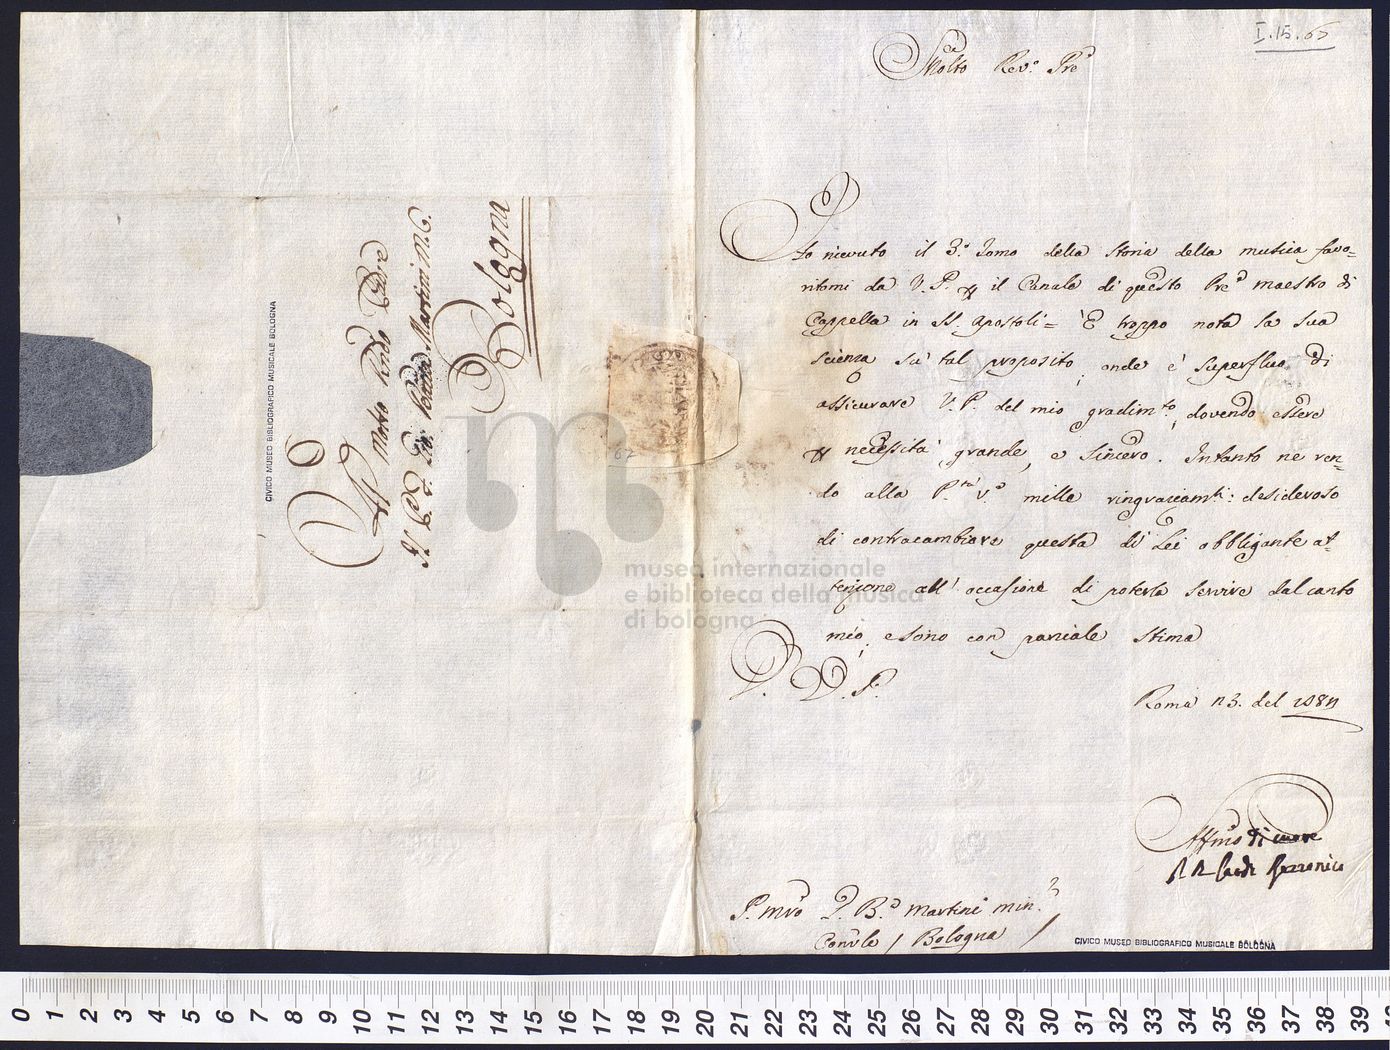 I.15.65
Molto Rev.o Pre
Ho ricevuto il 3.o Tomo della Storia della musica favo-
ritomi da V. P. il Canale di questo Pre maestro di
Cappella in SS. Apostoli = È troppo nota la sua
scienza su tal proposito, onde è superfluo di
assicurare V. P. del mio gradim.to, dovendo essere
necessità grande, e sincero. Intanto ne ren-
do alla P.tà V.a mille ringraziam.ti: desideroso
di contracambiare questa di Lei obbligante at-
tenzione all' occasione di poterla servire dal canto
mio, e sono con parziale stima
D. V. P.
Roma 13. del
Affmo di cuore
P. mro Martini min.
Conv.le / Bologna /
CIVICO MUSEO BIBLIOGRAFICO MUSICALE BOLOGNA
Al Molto Rndo Pdre
Il P. F. Martini M.C.
Bologna
CIVICO MUSEO BIBLIOGRAFICO MUSICALE BOLOGNA
62
museo internazionale
e biblioteca della musica
di bologna
0 1 2 3 4 5 6 7 8 9 10 11 12 13 14 15 16 17 18 19 20 21 22 23 24 25 26 27 28 29 30 31 32 33 34 35 36 37 38 39